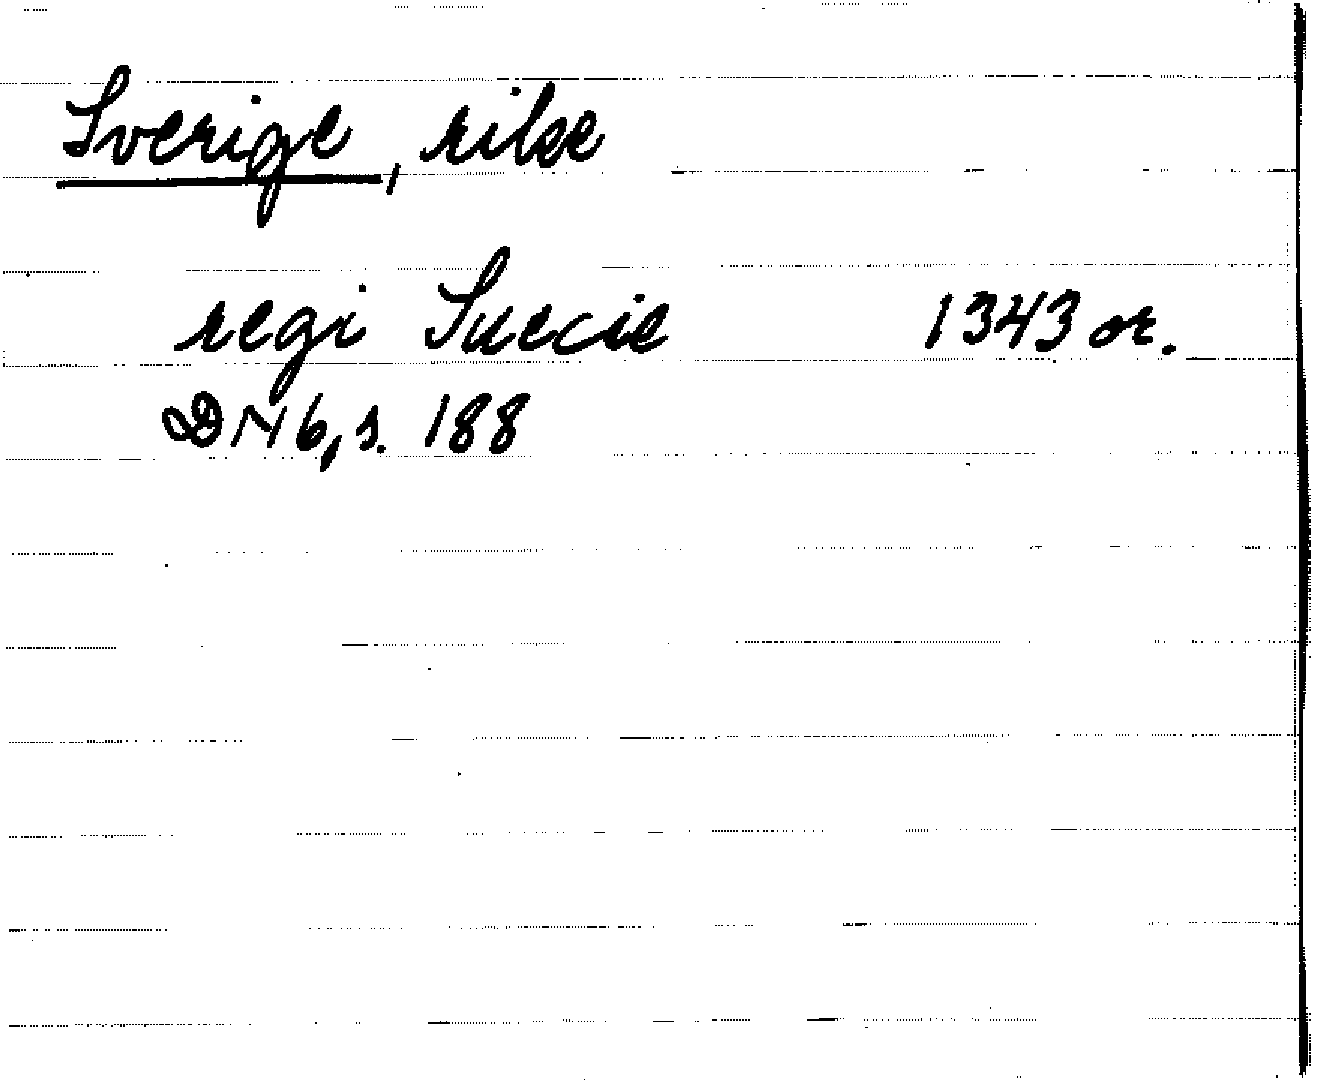 Sverige, rike
regi Suecie 1343 or.
DN 6, s. 188